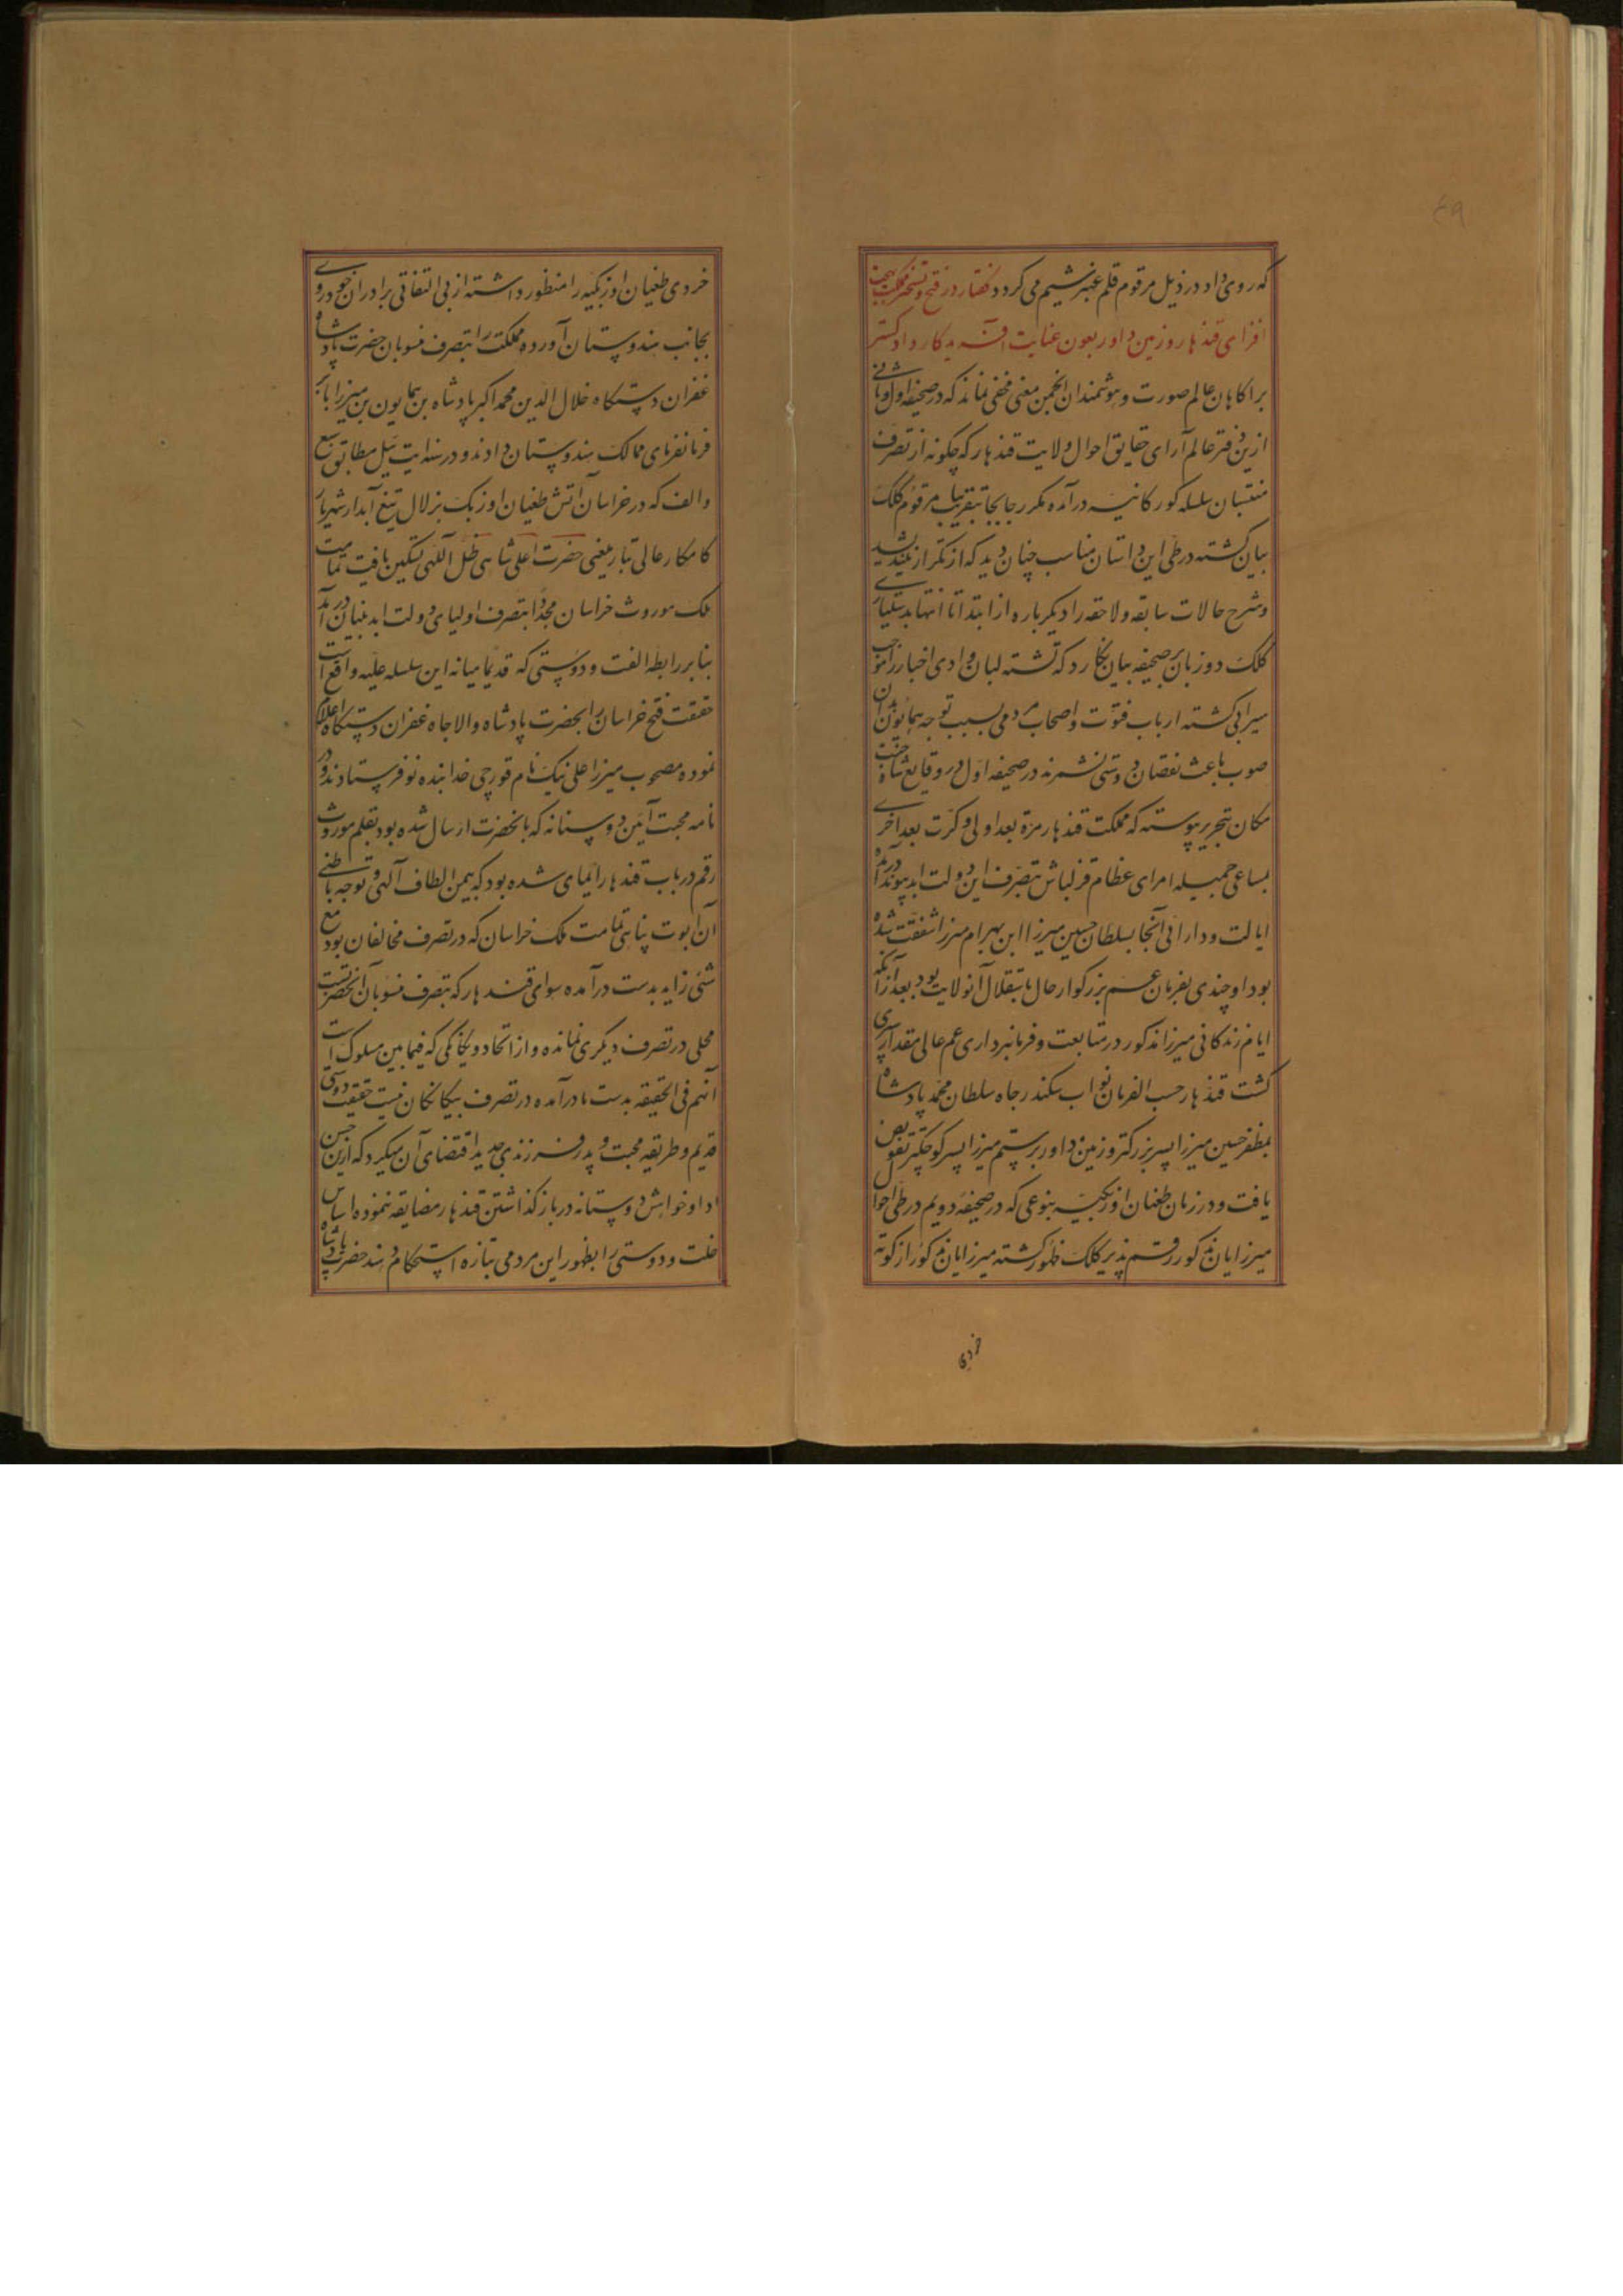 ۴۹
که روی داد در ذیل مرقوم قلم عنبر شمیم می کردد گفتار در فتح و تسخیر مملکت بهجت
افزای قندهار و زمین داور بعون عنایت آفریدکار دادکستر
بر آکاهان عالم صورت و هوشمندان انجمن معنی مخفی نماند که در صحیفه اول و ثانی
ازین دفتر عالم آرای حقایق احوال ولایت قندهار که چکونه از تصرف
منتسبان سلسله کورکانیه درآمده مکرر جابجا بتقریب مرقوم کلک
بیان کشته در طی این داستان مناسب چنان دید که از تکرار نیندیشید
و شرح حالات سابقه و لاحقه را دیکر باره از ابتدا تا انتها بدستیاری
کلک دو زبان بر صحیفه بیان نکارد که تشنه لبان وادی اخبار را موجب
سیرابی کشته ارباب فتوت و اصحاب مردمی بسبب توجه همایون بدان
صوب باعث نقصان دوستی نشمرند در صحیفه اول در وقایع شاه جنت
مکان بتحریر پیوسته که مملکت قندهار مرة بعد اولی و کرت بعد اخری
بمساعی جمیله امرای عظام قزلباش بتصرف این دولت ابد پیوند درآمده
ایالت و دارائی آنجا بسلطان حسین میرزا ابن بهرام میرزا شفقت شده
بود او چندی بفرمان عم بزرکوار حال باستقلال آنولایت بود بعد از آنکه
ایام زندکانی میرزا مذکور در متابعت و فرمانبرداری عم عالی مقدار سپری
کشت قندهار حسب الفرمان نواب سکندر جاه سلطان محمد پادشاه
بمظفر حسین میرزا پسر بزرکتر و زمین داور برستم میرزا پسر کوچکتر تفویض
یافت و در زمان طغیان اوزبکیه بنوعی که در صحیفه دویم در طی احوال
میرزایان مذکور رقم پذیر کلک ظهور کشته میرزایان مذکور از کوته
خردی
خردی طغیان اوزبکیه را منظور داشته از بی التفاتی برادران خود روی
بجانب هندوستان آورده مملکت را بتصرف منسوبان حضرت پادشاه
غفران دستکاه جلال الدین محمد اکبر پادشاه بن همایون بن میرزا بابر
فرمانفرمای ممالک هندوستان دادند و در سنه ایت ئیل مطابق سبع
و الف که در خراسان آتش طغیان اوزبک بزلال تیغ آبدار شهریار
کامکار عالی تبار یعنی حضرت اعلی شاهی ظل اللهی تسکین یافت تمامت
ملک موروث خراسان مجددا بتصرف اولیای دولت ابد بنیان درآمد
بنابر رابطه الفت و دوستی که قدیما میانه این سلسله علیه واقع است
حقیقت فتح خراسان را بحضرت پادشاه والاجاه غفران دستکاه اعلام
نموده مصحوب میرزا علی نیک نام قورچی خدابنده لو فرستادند و در
نامه محبت آئین دوستانه که بانحضرت ارسال شده بود بقلم مودت
رقم در باب قندهار ایمای شده بود که بیمن الطاف آلهی و توجه باطنی
آن ابوت پناهی تمامت ملک خراسان که در تصرف مخالفان بود مع
شئی زاید بدست درآمده سوای قندهار که بتصرف منسوبان آنحضرتست
محلی در تصرف دیکری نمانده و از اتحاد و یکانکی که فیما بین مسلوک است
آنهم فی الحقیقه بدست ما درآمده در تصرف بیکانکان نیست حقیقت دوستی
قدیم و طریقه محبت و پدر فرزندی جدید اقتضای آن میکرد که ازین حسن
ادا و خواهش دوستانه در باز کذاشتن قندهار مضایقه ننموده اساس
خلت و دوستی را بظهور این مردمی بتازه استحکام دهند حضرت پادشاه